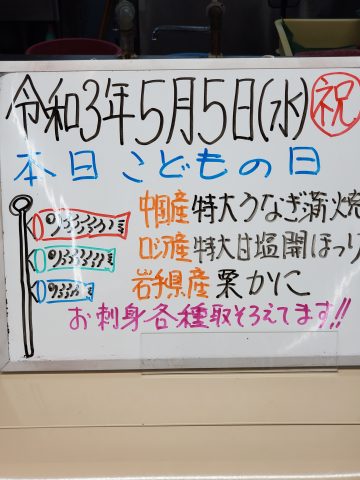 令和3年5月5日(水)祝
本日こどもの日
中国産 特大うなぎ蒲焼
ロシア産 特大甘塩開ほっけ
岩手県産 粟かに
お刺身各種取そろえてます!!